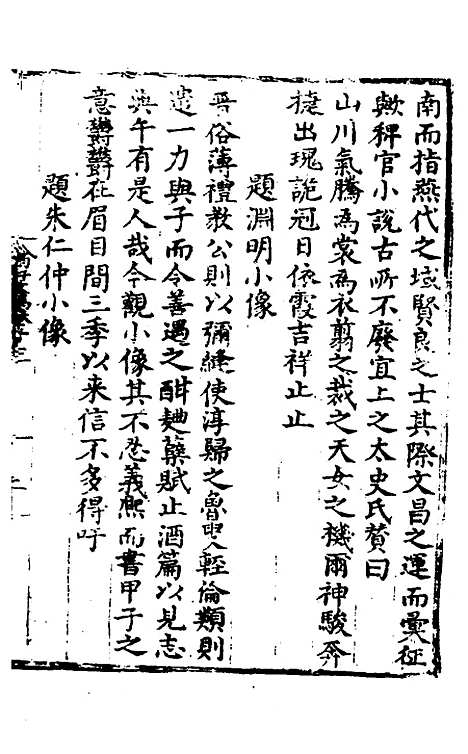 南而指燕代之域賢良之士其際文昌之運而彙征
歟稗官小說古所不廢宜上之太史氏贊曰
山川氣騰為裳為衣翦之裁之天女之機爾神駿奔
捷出瑰詭冠日依霞吉祥止止
題淵明小像
晉俗薄禮教公則以彌縫使淳歸之魯叟輕倫類則
遣一力與子而令善遇之酣麯蘖賦止酒篇以見志
典午有是人哉今觀小像其不忍義熙而書甲子之
意鬱鬱在眉目間三季以来信不多得呼
題朱仁仲小像